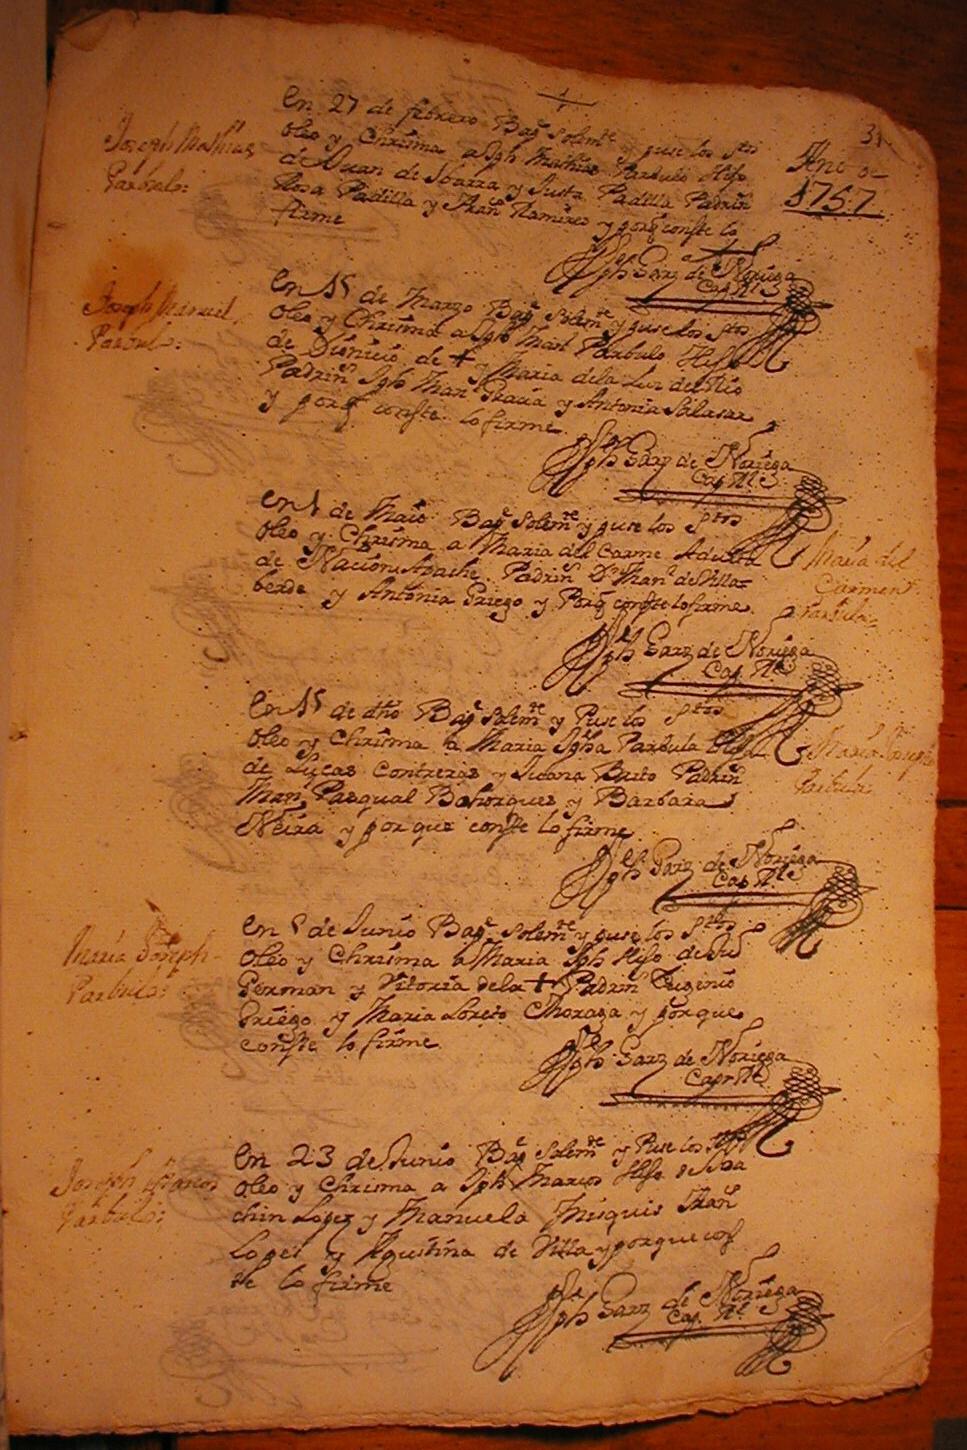 31
Año de
1757
Joseph Mathias
Parbulo:
En 27 de febrero Baq.e Solem.te y puse los S.tos
Oleo y Chrisma a Jph Mathias Parbulo Hijo
de Juan de Ibarra y Justa Padilla Padrin.s
Rosa Padilla y Fran.co Ramires y porq conste lo
firme
Jph Garz.a de Noriega
Cap. R.l
Joseph Manuel
Parbul.:
En 15 de Marzo Baq.e Solem.te y puse los S.tos
Oleo y Chrisma a Jph Man.l Parbulo Hijo
de Dionicio de + y Maria de la Luz del Rio
Padrin.s Jph Man.l Gracia y Antonia Salasar
y porq conste lo firme
Jph Garz de Noriega
Cap. R.l
Maria del
Carmen
Parbula
En 1 de Maio Baq.e Solem.te y puse los S.tos
Oleo y Chrisma a Maria del Carme Adulta
de Nacion Apache Padrin.s D.n Man.l de Villa=
berde y Antonia Griego y Porq conste lo firme
Jph Garz de Noriega
Cap. R.l
Maria Joseph
Parbula
En 15 de dho Baq.e Solem.te y Puse los S.tos
Oleo y Chrisma a Maria Jpha Parbula Hija
de Lucas Contreras y Juana Brito Padrin.s
Man.l Pasqual Bohorques y Barbara
Neira y porque conste lo firme
Jph Garz de Noriega
Cap. R.l
Maria Joseph
Parbula:
En de Junio Baq.e Solem.te y puse los S.tos
Oleo y Chrisma a Maria Jph Hijo de Ju.
German y Vitoria de la + Padrin.s Eugenio
Griego y Maria Loreto Moraga y porque
conste lo firme
Jph Garz de Noriega
Cap. R.l
Joseph Marcos
Parbulo:
En 23 de Junio Baq.e Solem.te y Puse los S.tos
Oleo y Chrisma a Jph Marcos Hijo de Joa
chin Lopez y Manuela Misquis Fran.co
Lopes y Agustina de Villa y porque cons
te lo firme
Jph Garz de Noriega
Cap. R.l